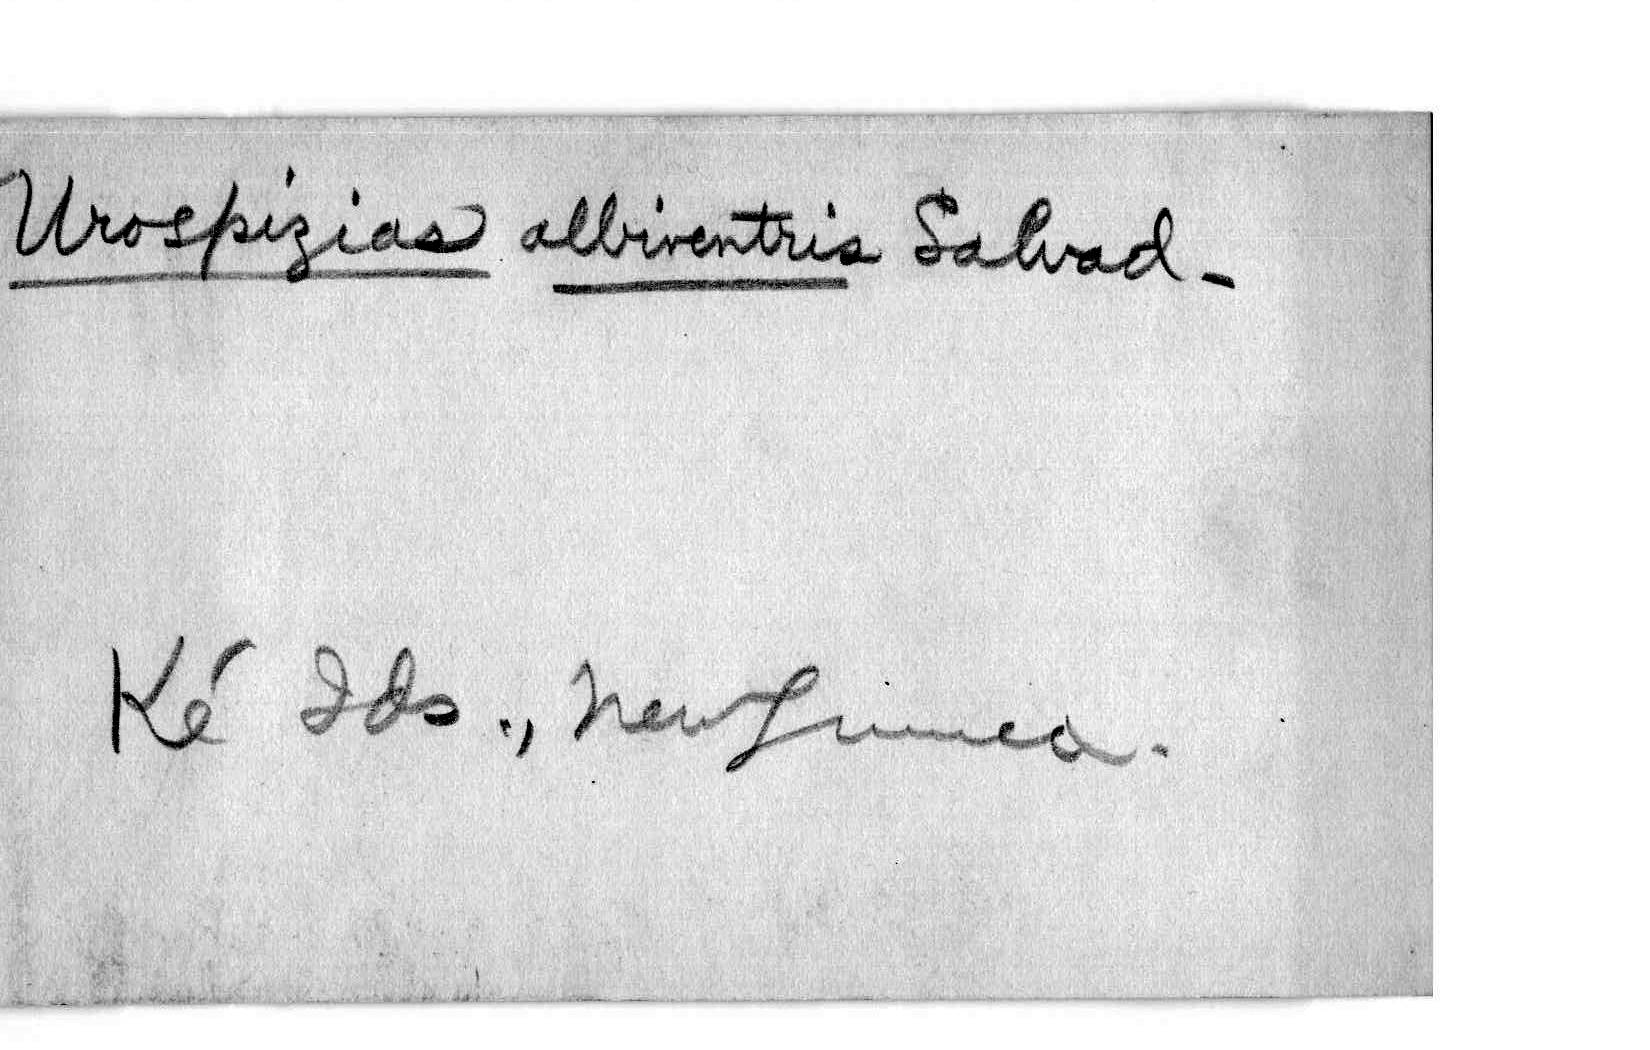 Urospizias albiventris Salvad.
Ké Ids., New Guinea.